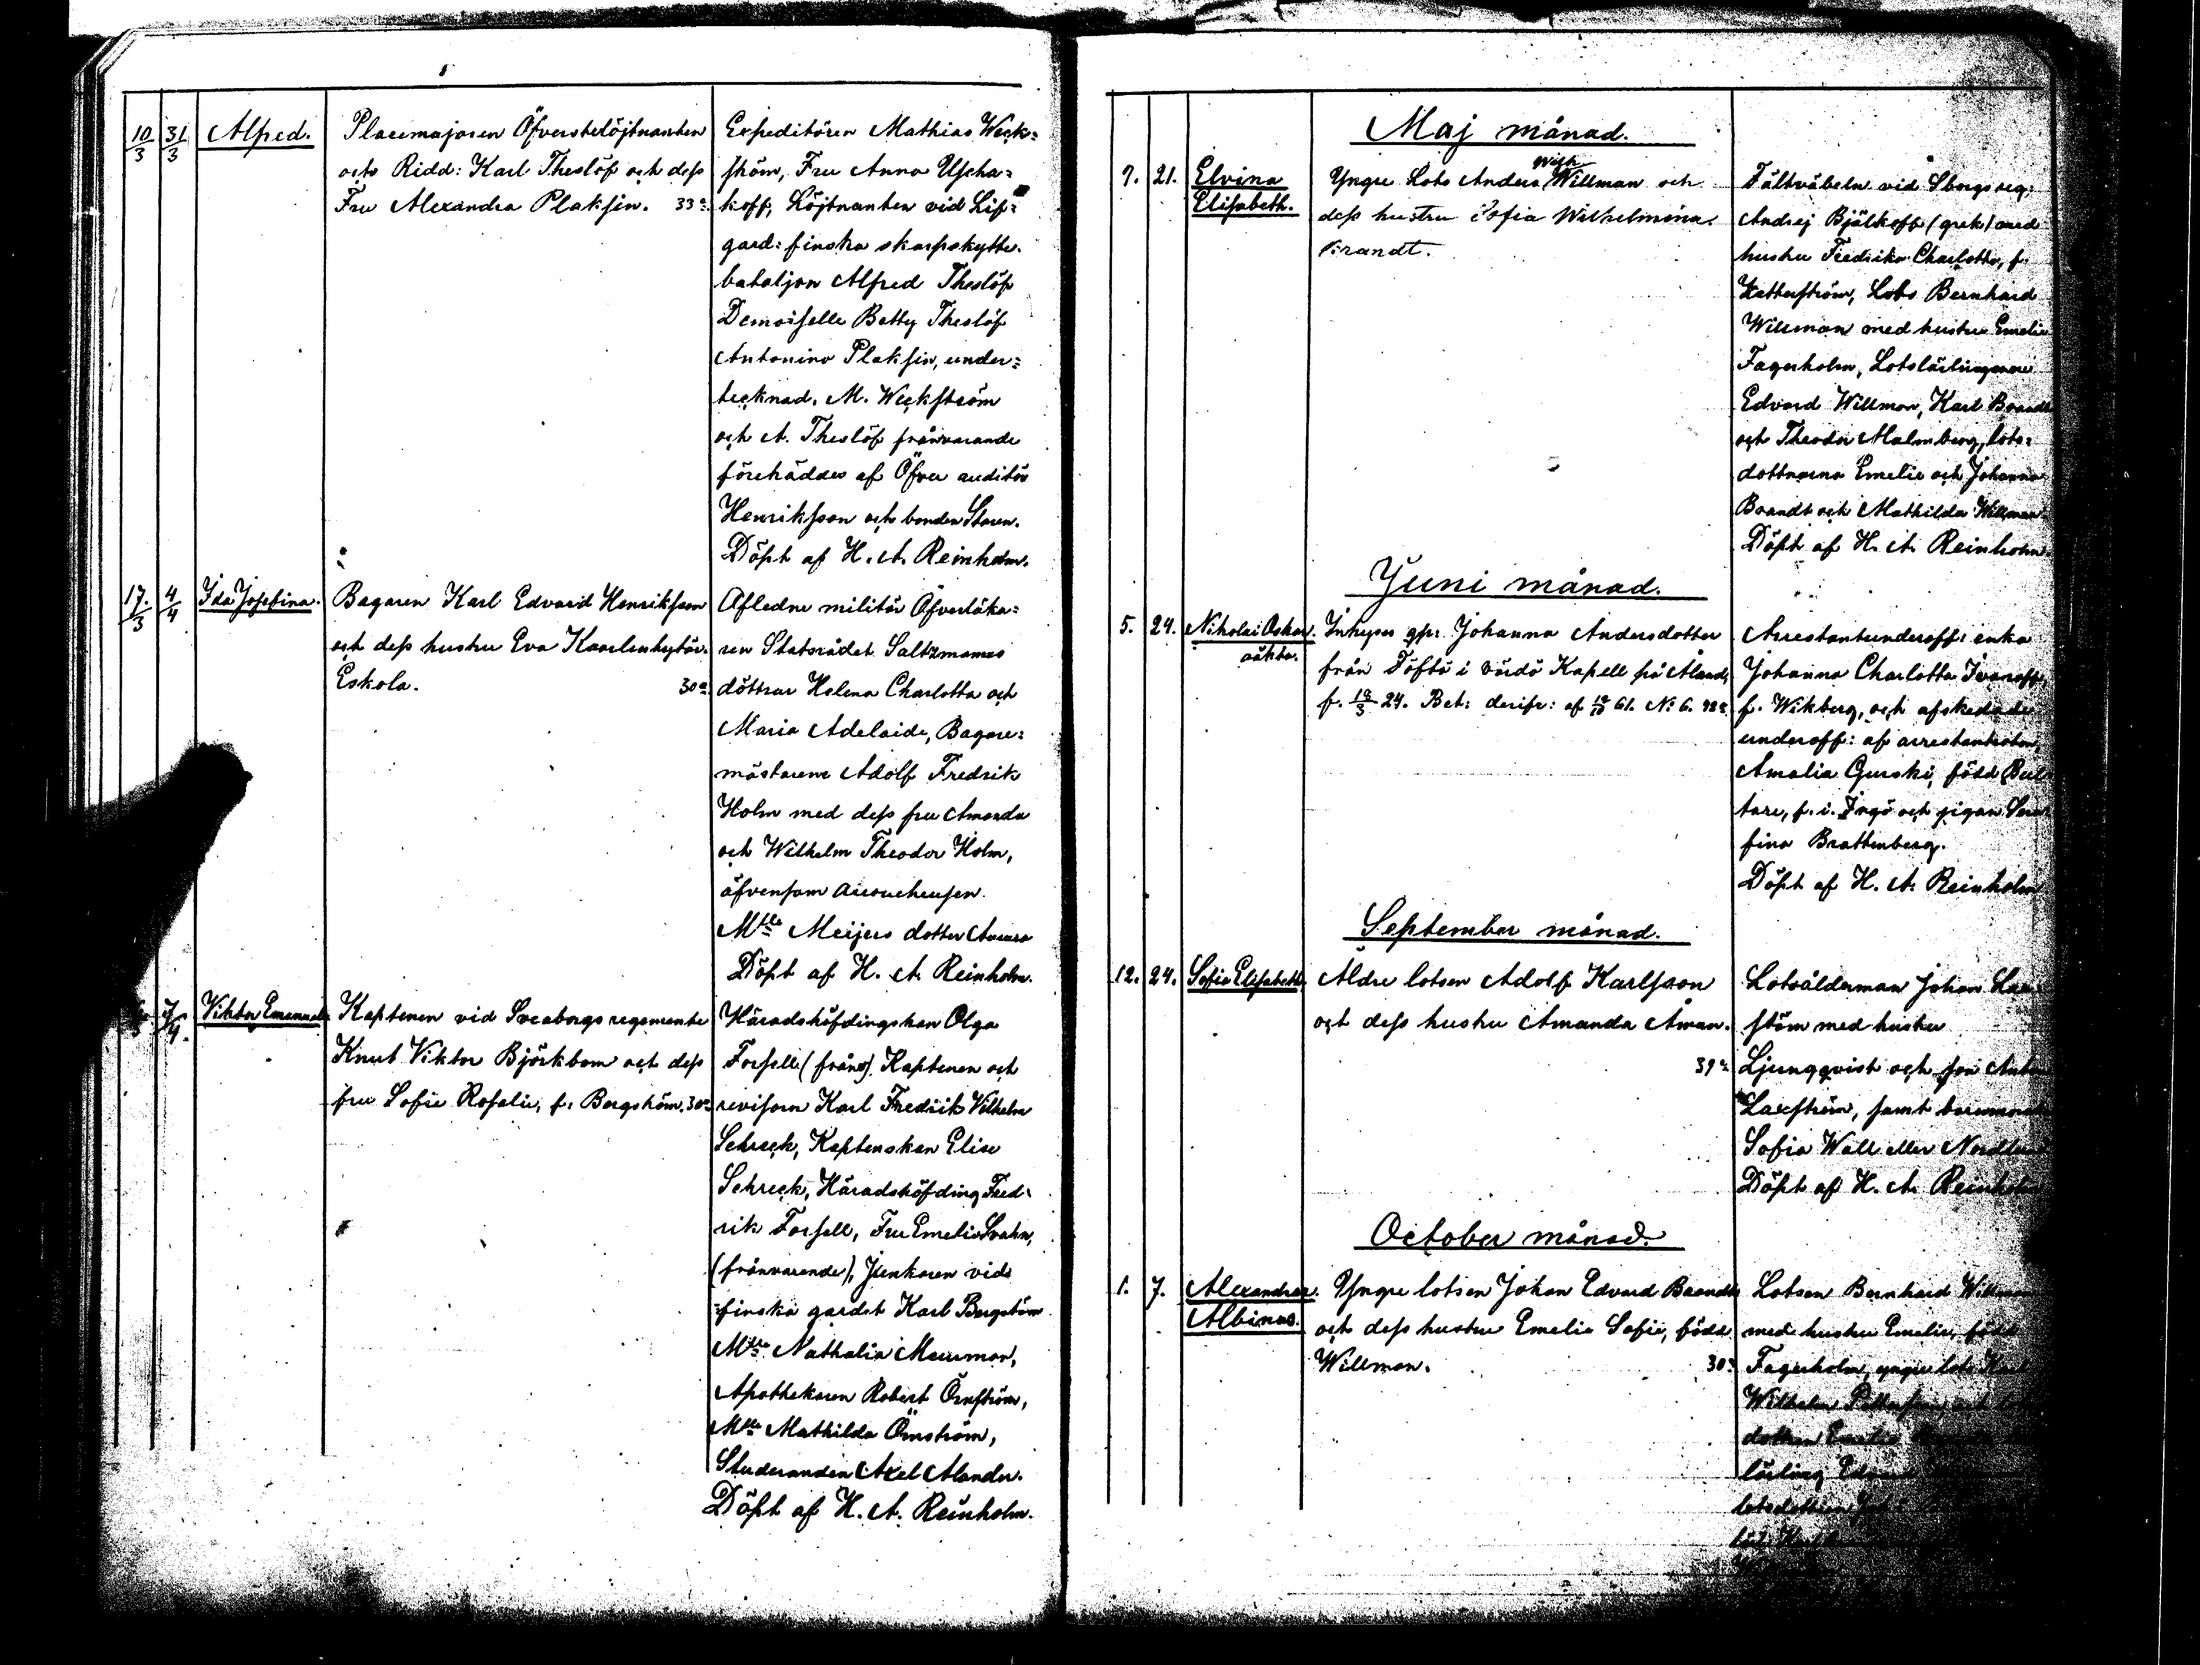 10/3 31/3 Alfred. Placmajoren Öfverstelöjtnanten
och Ridd: Karl Theslöf och dess
Fru Alexandra Plaksin. 33 a.
Expeditören Mathias Weck=
ström, Fru Anna Uscha=
koff, Löjtnanten vid Lif=
gard: finska skarpskytte.
bataljon Alfred Theslöf
Demoiselle Betty Theslöf
Antonina Plaksin, under=
tecknad. M. Weckström
och A. Theslöf frånvarande
företräddes af Öfver auditör
Henriksson och bonden Storen.
Döpt af H. A. Reinholm.
17./3 4/4 Ida Josefina. Bagaren Karl Edvard Henriksson
och dess hustru Eva
Eskola. 30 a.
Afledne militär Öfverläka=
ren Statsrådet Saltzmanns
döttrar Helena Charlotta och
Maria Adelaide, Bagare=
mästaren Adolf Fredrik
Holm med dess fru Amanda
och Wilhelm Theodor Holm,
äfvensom accoucheusen
Mlle Meijers dotter Aurora
Döpt af H. A. Reinholm.
7/4. Viktor Emanuel. Kaptenen vid Sveaborgs regemente
Knut Viktor Björkbom och dess
fru Sofie Rosalie, f. Bergström. 30 a.
Häradshöfdingskan Olga
Forsell (frånv). Kaptenen och
revisorn Karl Fredrik Vilhelm
Schreck, Kaptenskan Elise
Schreck, Häradshöfding Fred-
rik Forsell, Fru Emelie Svahn,
(frånvarande), Junkaren vid
finska gardet Karl Bergström
Mlle Nathalia Meurman,
Apothekaren Robert Örnström,
Mlle Mathilda Örnström,
Studeranden Axel Alander.
Döpt af H. A. Reinholm.
Maj månad.
7. 21. Elvina
Elisabeth.
Wilh
Yngre Lots Anders Willman och
dess hustru Sofia Wilhelmina
Brandt.
Fältväbeln vid Sborgs reg:
Andrej Bjälkoff (grek) med
hustru Fredrika Charlotta, f.
Zetterström, Lots Bernhard
Willman med hustru Emelie
Fagerholm, Lotslärlingarne
Edvard Willman, Karl Brandt
och Theodor Malmberg, lots=
döttrarna Emelie och Johanna
Brandt och Mathilda Willman.
Döpt af H. A. Reinholm.
Juni månad.
5. 24. Nikolai Oskar.
oäkta.
Inhyses qp: Johanna Andersdotter
från Töftö i Vårdö Kapell på Åland,
f. 18/3 24. Bet: derifr: af 61. No 6.
Arrestantunderoff: enka
Johanna Charlotta Ivanoff,
f. Wikberg, och afskedade
underoff: af arrestantrotan,
Amalia Gurski, född
f. i. Ingå och pigan
fina Brattenberg.
Döpt af H. A. Reinholm
September månad.
12. 24. Sofia Elisabeth. Äldre lotsen Adolf Karlsson
och dess hustru Amanda Åman.
39 a.
Lotsålderman Johan
ström med hustru
Ljungqvist och son
Laxström, samt
Sofia Wall eller
Döpt af H. A. Reinholm
October månad.
1. 7. Alexandra
Albina.
Yngre lotsen Johan Edvard Brandt
och dess hustru Emelie Sofie, född
Willman. 30 a.
Lotsen Bernhard Willman
med hustru Emelie, född
Fagerholm, yngre lots
Wilhelm
dottren Emelie
lärling
lotsdottren